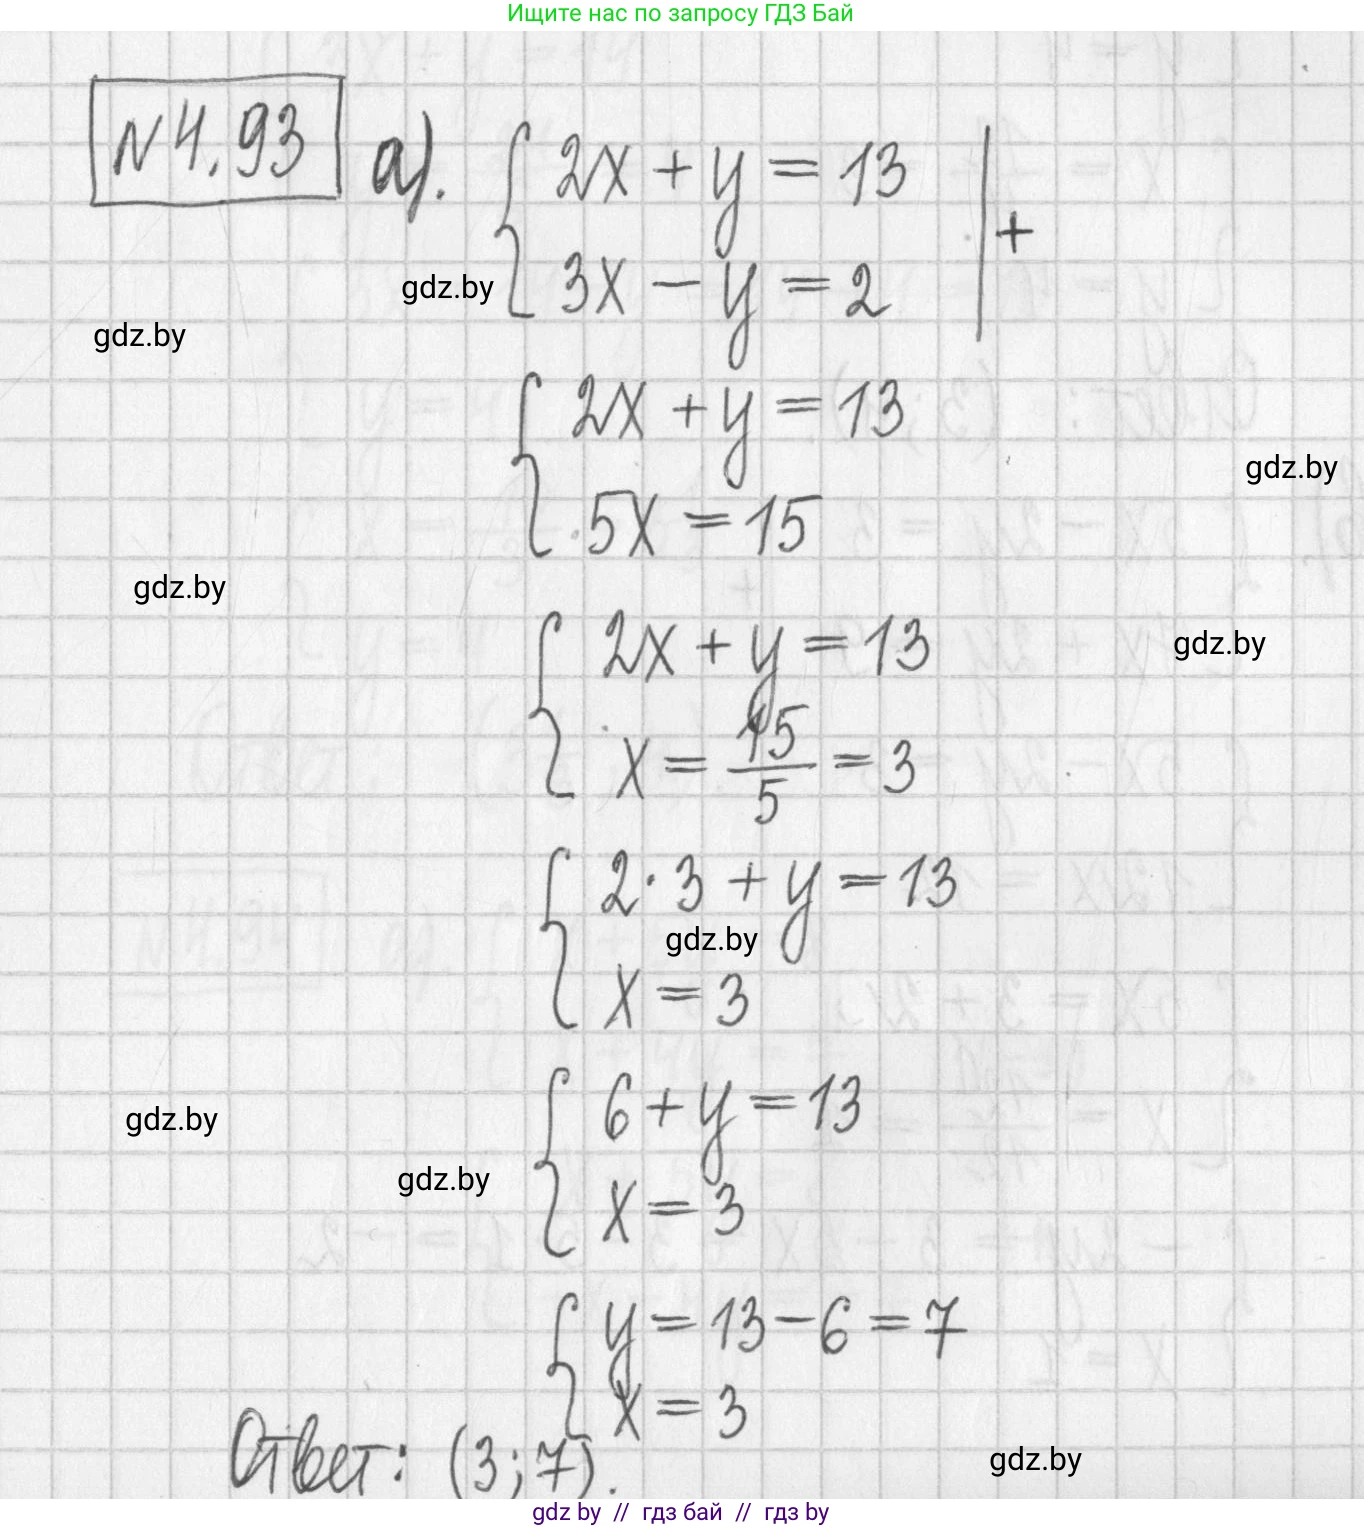 Ищите нас по запросу ГДЗ Бай
№4.93 а). { 2x + y = 13 | +
3x − y = 2
gdz.by
gdz.by
{ 2x + y = 13
gdz.by
5x = 15
gdz.by
{ 2x + y = 13
gdz.by
x = 15/5 = 3
{ 2·3 + y = 13
gdz.by
x = 3
{ 6 + y = 13
gdz.by
gdz.by
x = 3
{ y = 13 − 6 = 7
x = 3
Ответ: (3; 7).
gdz.by
gdz by // гдз бай // gdz by